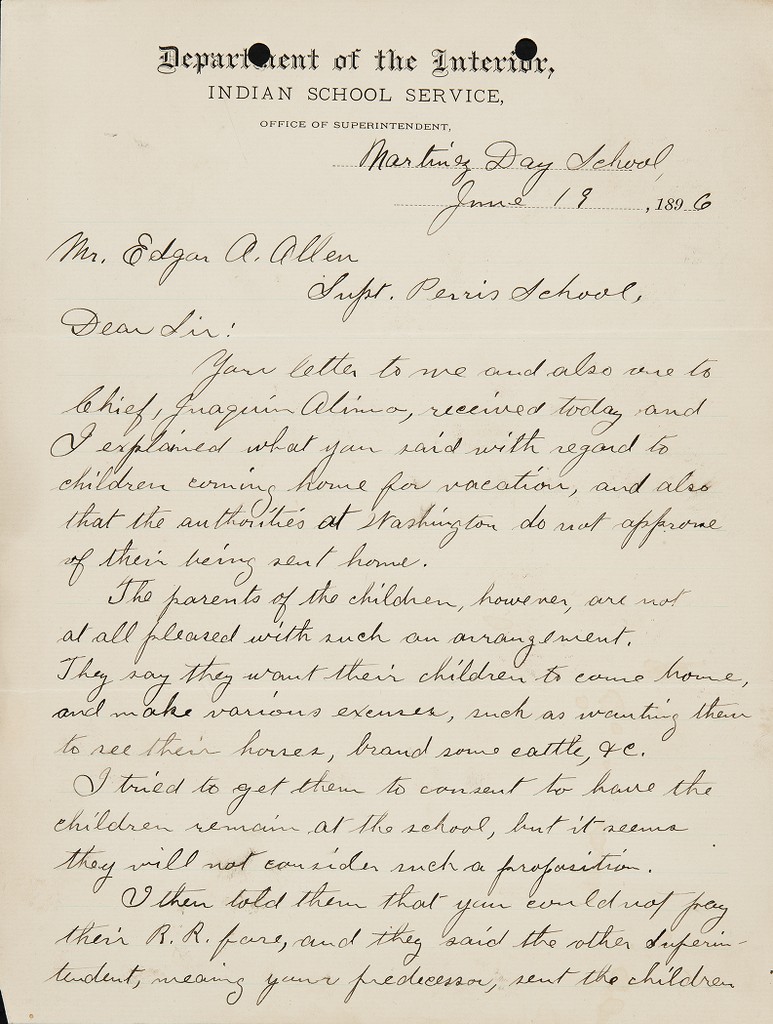 Department of the Interior,
INDIAN SCHOOL SERVICE,
OFFICE OF SUPERINTENDENT,
Martinez Day School,
June 19, 1896
Mr. Edgar A. Allen
Supt. Perris School,
Dear Sir:
Your letter to me and also one to
Chief, Juaquin Alimo, received today and
I explained what you said with regard to
children coming home for vacation, and also
that the authorities at Washington do not approve
of their being sent home.
The parents of the children, however, are not
at all pleased with such an arrangement.
They say they want their children to come home,
and make various excuses, such as wanting them
to see their horses, brand some cattle, &c.
I tried to get them to consent to have the
children remain at the school, but it seems
they will not consider such a proposition.
I then told them that you could not pay
their R. R. fare, and they said the other Superin-
tendent, meaing your predecessor, sent the children